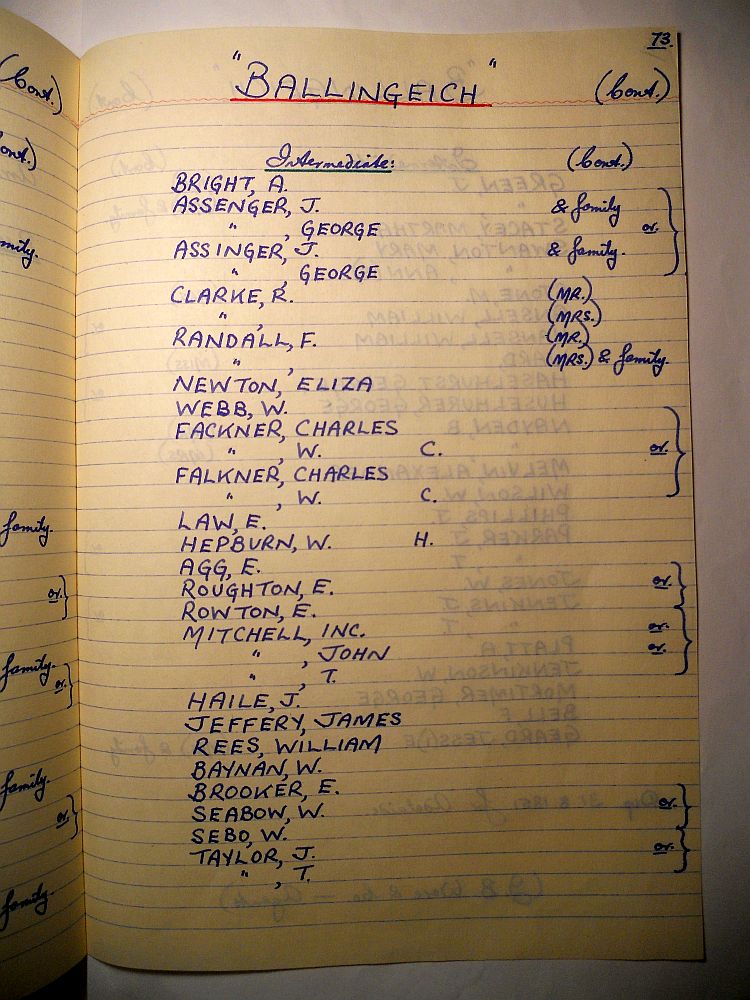 73.
"BALLINGEICH" (Cont.)
Intermediate: (Cont.)
BRIGHT, A.
ASSENGER, J. & family
" , GEORGE or.
ASSINGER, J. & family.
" , GEORGE
CLARKE, R. (MR.)
" , (MRS.)
RANDALL, F. (MR.)
" , (MRS.) & family.
NEWTON, ELIZA
WEBB, W.
FACKNER, CHARLES
" , W. C. or.
FALKNER, CHARLES
" , W. C.
LAW, E.
HEPBURN, W. H.
AGG, E.
ROUGHTON, E. or.
ROWTON, E.
MITCHELL, INC. or.
" , JOHN or.
" , T.
HAILE, J.
JEFFERY, JAMES
REES, WILLIAM
BAYNAN, W.
BROOKER, E.
SEABOW, W. or.
SEBO, W.
TAYLOR, J. or.
" , T.
(Cont.)
ont.)
mily.
family.
or.
family.
or.
family
or.
family.